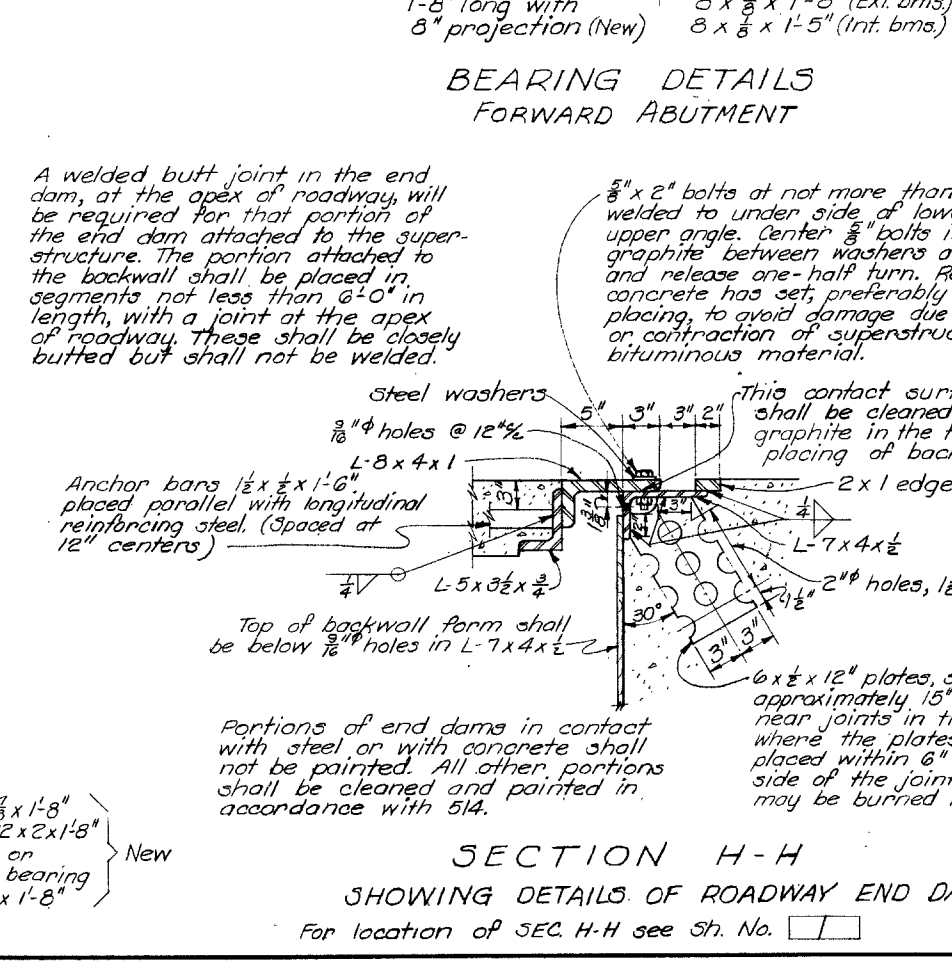 1'-8" long with
8" projection (New)
8 x 5/8 x 1'-8" (Ext. bms.)
8 x 1/8 x 1'-5" (Int. bms.)
BEARING DETAILS
FORWARD ABUTMENT
A welded butt joint in the end
dam, at the apex of roadway, will
be required for that portion of
the end dam attached to the super-
structure. The portion attached to
the backwall shall be placed in
segments not less than 6'-0" in
length, with a joint at the apex
of roadway. These shall be closely
butted but shall not be welded.
5/8" x 2" bolts at not more than
welded to under side of low
upper angle. Center 5/8" bolts i
graphite between washers a
and release one-half turn. R
concrete has set, preferably
placing, to avoid damage due
or contraction of superstruc
bituminous material.
Steel washers
9/16"φ holes @ 12" c/c
L-8 x 4 x 1
Anchor bars 1½ x ½ x 1'-6"
placed parallel with longitudinal
reinforcing steel. (Spaced at
12" centers)
5"
3"
3"
2"
This contact sur
shall be cleaned
graphite in the
placing of bac
2 x 1 edge
3"
3"
2"
1/4
L-7 x 4 x ½
2"φ holes, 1½
1½"
1/4
L-5 x 3½ x ¾
30°
3"
3"
Top of backwall form shall
be below 9/16"φ holes in L-7 x 4 x ½
6 x ½ x 12" plates, s
approximately 15"
near joints in t
where the plates
placed within 6"
side of the join
may be burned
Portions of end dams in contact
with steel or with concrete shall
not be painted. All other portions
shall be cleaned and painted in
accordance with 514.
x 1'-8"
2 x 2 x 1'-8"
or
bearing
x 1'-8"
New
SECTION H-H
SHOWING DETAILS OF ROADWAY END DA
For location of SEC. H-H see Sh. No. /